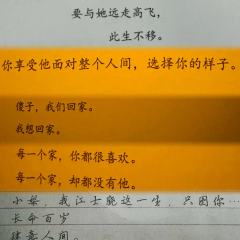 要与她远走高飞，
此生不移。
你享受他面对整个人间，选择你的样子。
傻子，我们回家。
我想回家。
每一个家，你都很喜欢。
每一个家，却都没有他。
小晓，我江士晓这一生，只图你…
长命百岁
肆意人间。